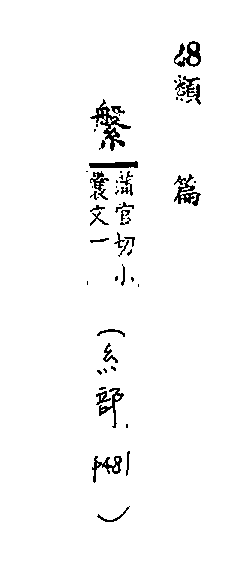 68類篇
縏
蒲官切小
囊文一
(糸部. p481)